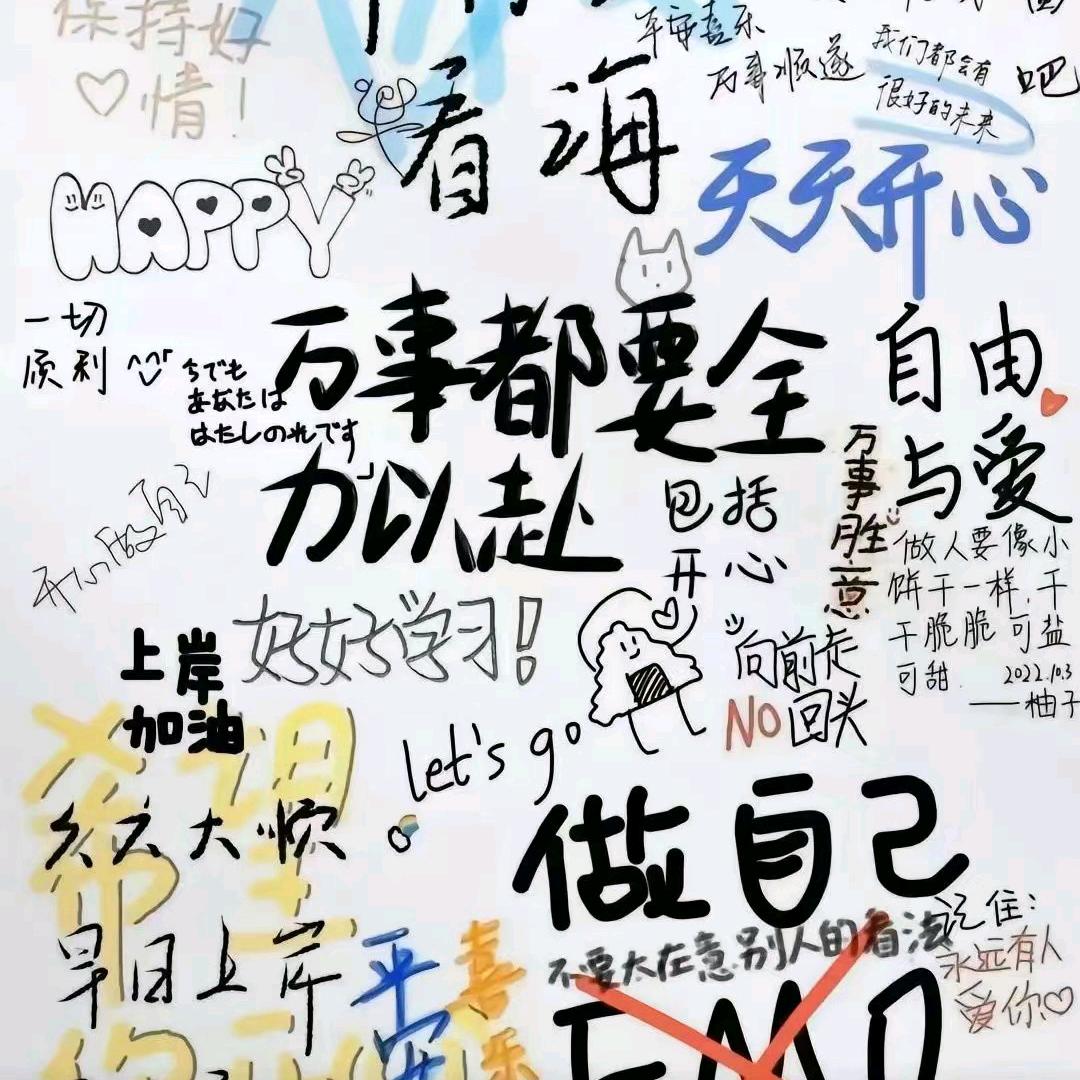 保持好
♡情！
看海
平安喜乐
万事顺遂
我们都会有
很好的未来
吧
HAPPY
天天开心
一切
顺利
ちでも
あなたは
はたしのれです
万事都要全
力以赴
包括
开心
自由
与爱
万事胜意
做人要像小
饼干一样,干
干脆脆 可盐
可甜.
2022.10.3
——柚子
好好学习！
上岸
加油
向前走
NO回头
let's go
希望
天天大顺
早日上岸
做自己
不要太在意别人的看法
记住：
永远有人
爱你♡
平安
喜乐
EMO